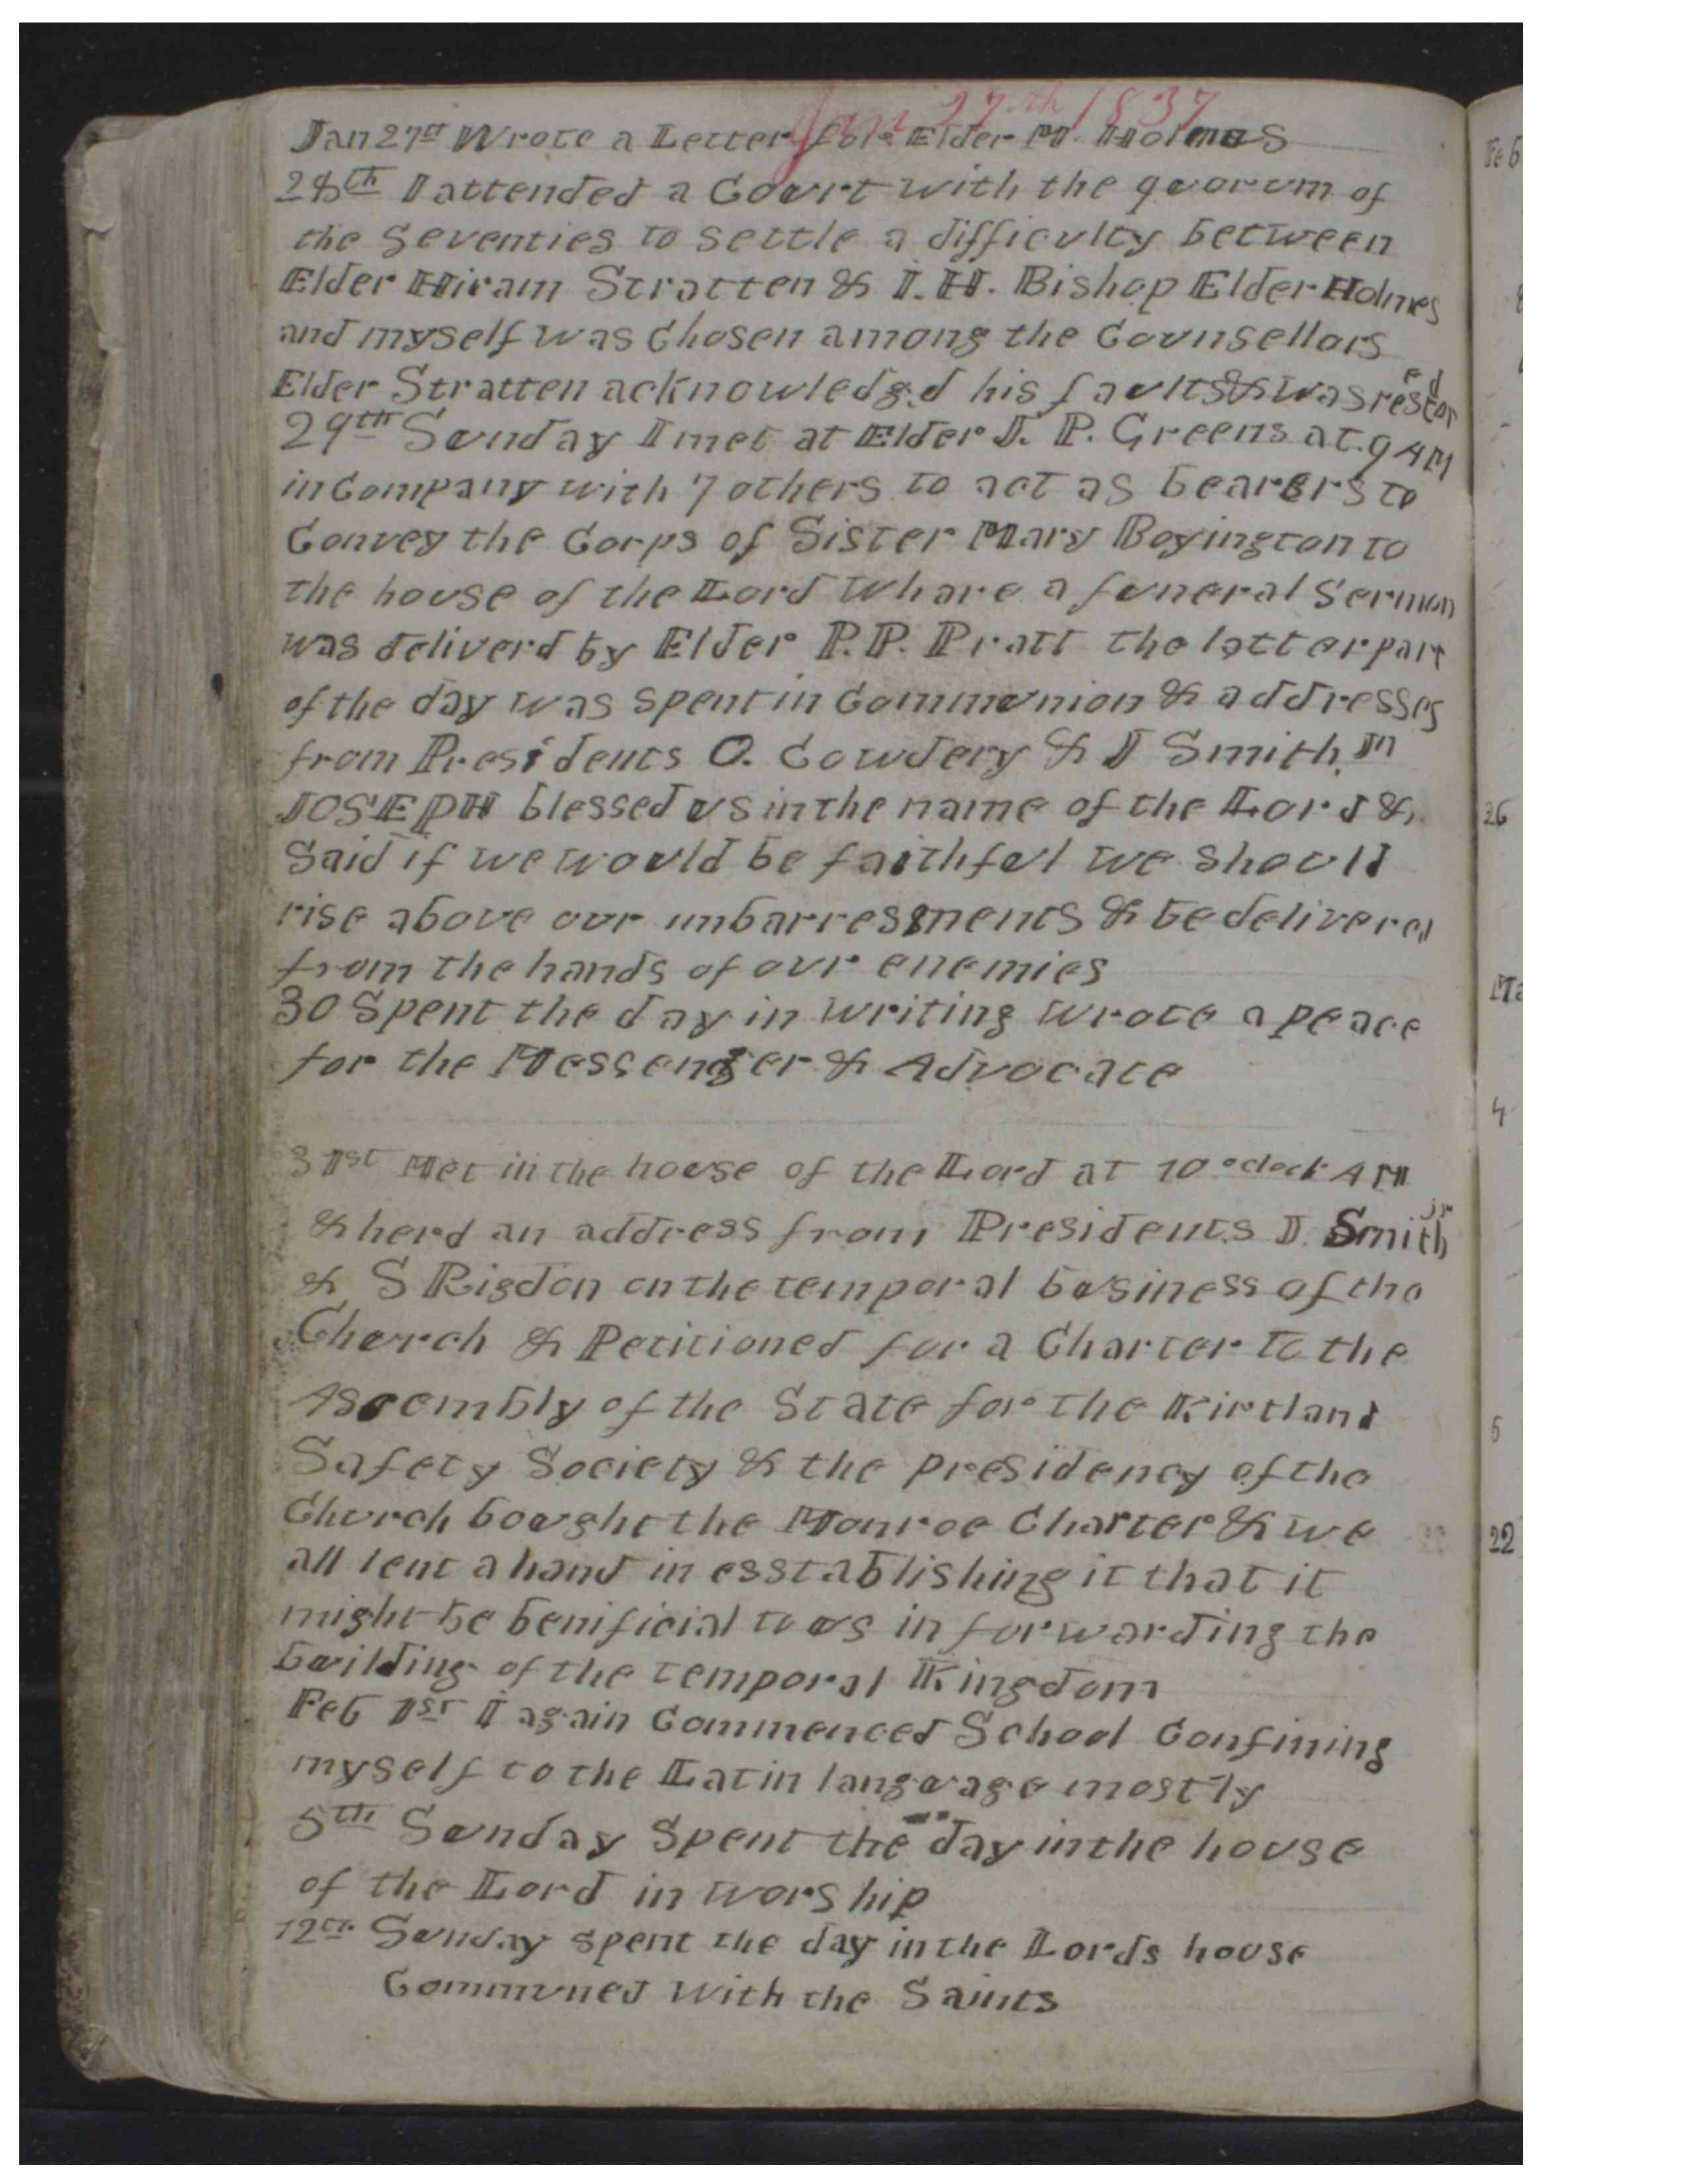 Jan 27th 1837
Jan 27st Wrote a Letter for Elder M. Holmes
28th I attended a Court with the quorum of
the Seventies to settle a difficulty between
Elder Hiram Stratten & I. H. Bishop Elder Holmes
and myself was Chosen among the Counsellors
Elder Stratten acknowledgd his faults & was restored
29th Sunday I met at Elder J. P. Greens at 9 AM
in Company with 7 others to act as bearers to
Convey the Corps of Sister Mary Boyington to
the house of the Lord Whare a funeral Sermon
was deliverd by Elder P.P. Pratt the latter part
of the day was spent in Communion & addresses
from Presidents O. Cowdery & J Smith Jn
JOSEPH blessed us in the name of the Lord &
Said if we would be faithful we should
rise above our imbarresments & be delivered
from the hands of our enemies
30 Spent the day in writing wrote a peace
for the Messenger & Advocate
31st Met in the house of the Lord at 10 oclock AM
& herd an address from Presidents J. Smith jr
& S Rigdon on the temporal business of the
Church & Petitioned for a Charter to the
Assembly of the State for the Kirtland
Safety Society & the presidency of the
Church bought the Monroe Charter & we
all lent a hand in esstablishing it that it
might be benificial to us in forwarding the
building of the temporal Kingdom
Feb 1st I again Commenced School Confining
myself to the Latin language mostly
5th Sunday Spent the day in the house
of the Lord in worship
12th Sunday spent the day in the Lords house
Communed with the Saints
Feb
26
4
5
22